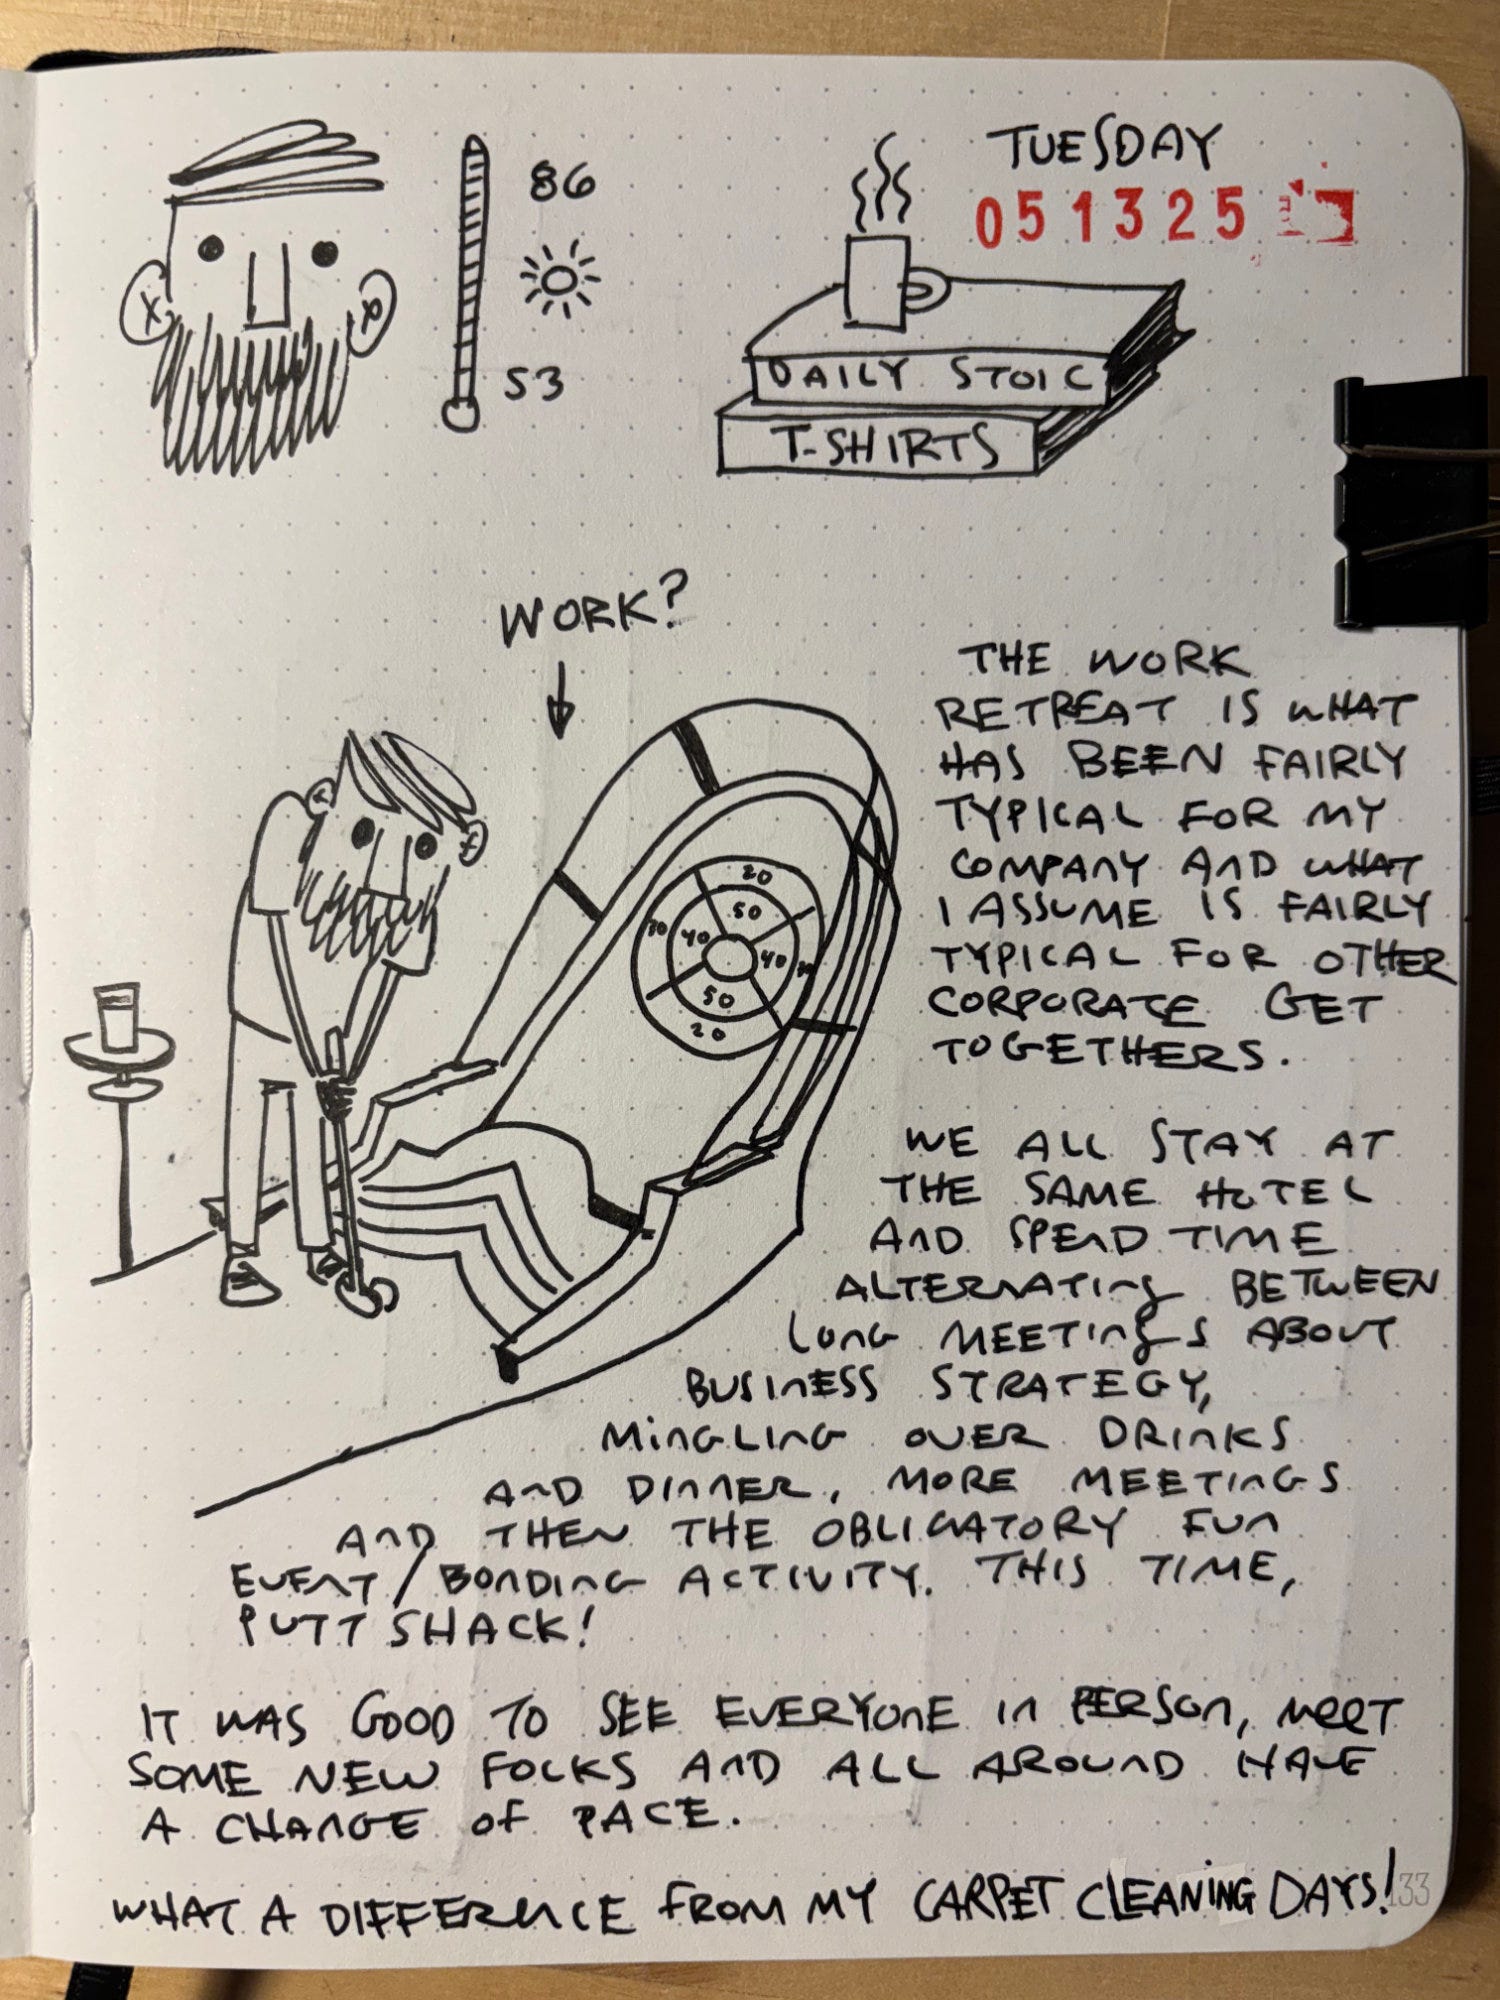 TUESDAY
051325
86
53
DAILY STOIC
T-SHIRTS
WORK?
20
50
30
40
40
50
20
THE WORK
RETREAT IS WHAT
HAS BEEN FAIRLY
TYPICAL FOR MY
COMPANY AND WHAT
I ASSUME IS FAIRLY
TYPICAL FOR OTHER
CORPORATE GET
TOGETHERS.
WE ALL STAY AT
THE SAME HOTEL
AND SPEND TIME
ALTERNATING BETWEEN
LONG MEETINGS ABOUT
BUSINESS STRATEGY,
MINGLING OVER DRINKS
AND DINNER, MORE MEETINGS
AND THEN THE OBLIGATORY FUN
EVENT/BONDING ACTIVITY. THIS TIME,
PUTT SHACK!
IT WAS GOOD TO SEE EVERYONE IN PERSON, MEET
SOME NEW FOLKS AND ALL AROUND HAVE
A CHANGE OF PACE.
WHAT A DIFFERENCE FROM MY CARPET CLEANING DAYS!
133